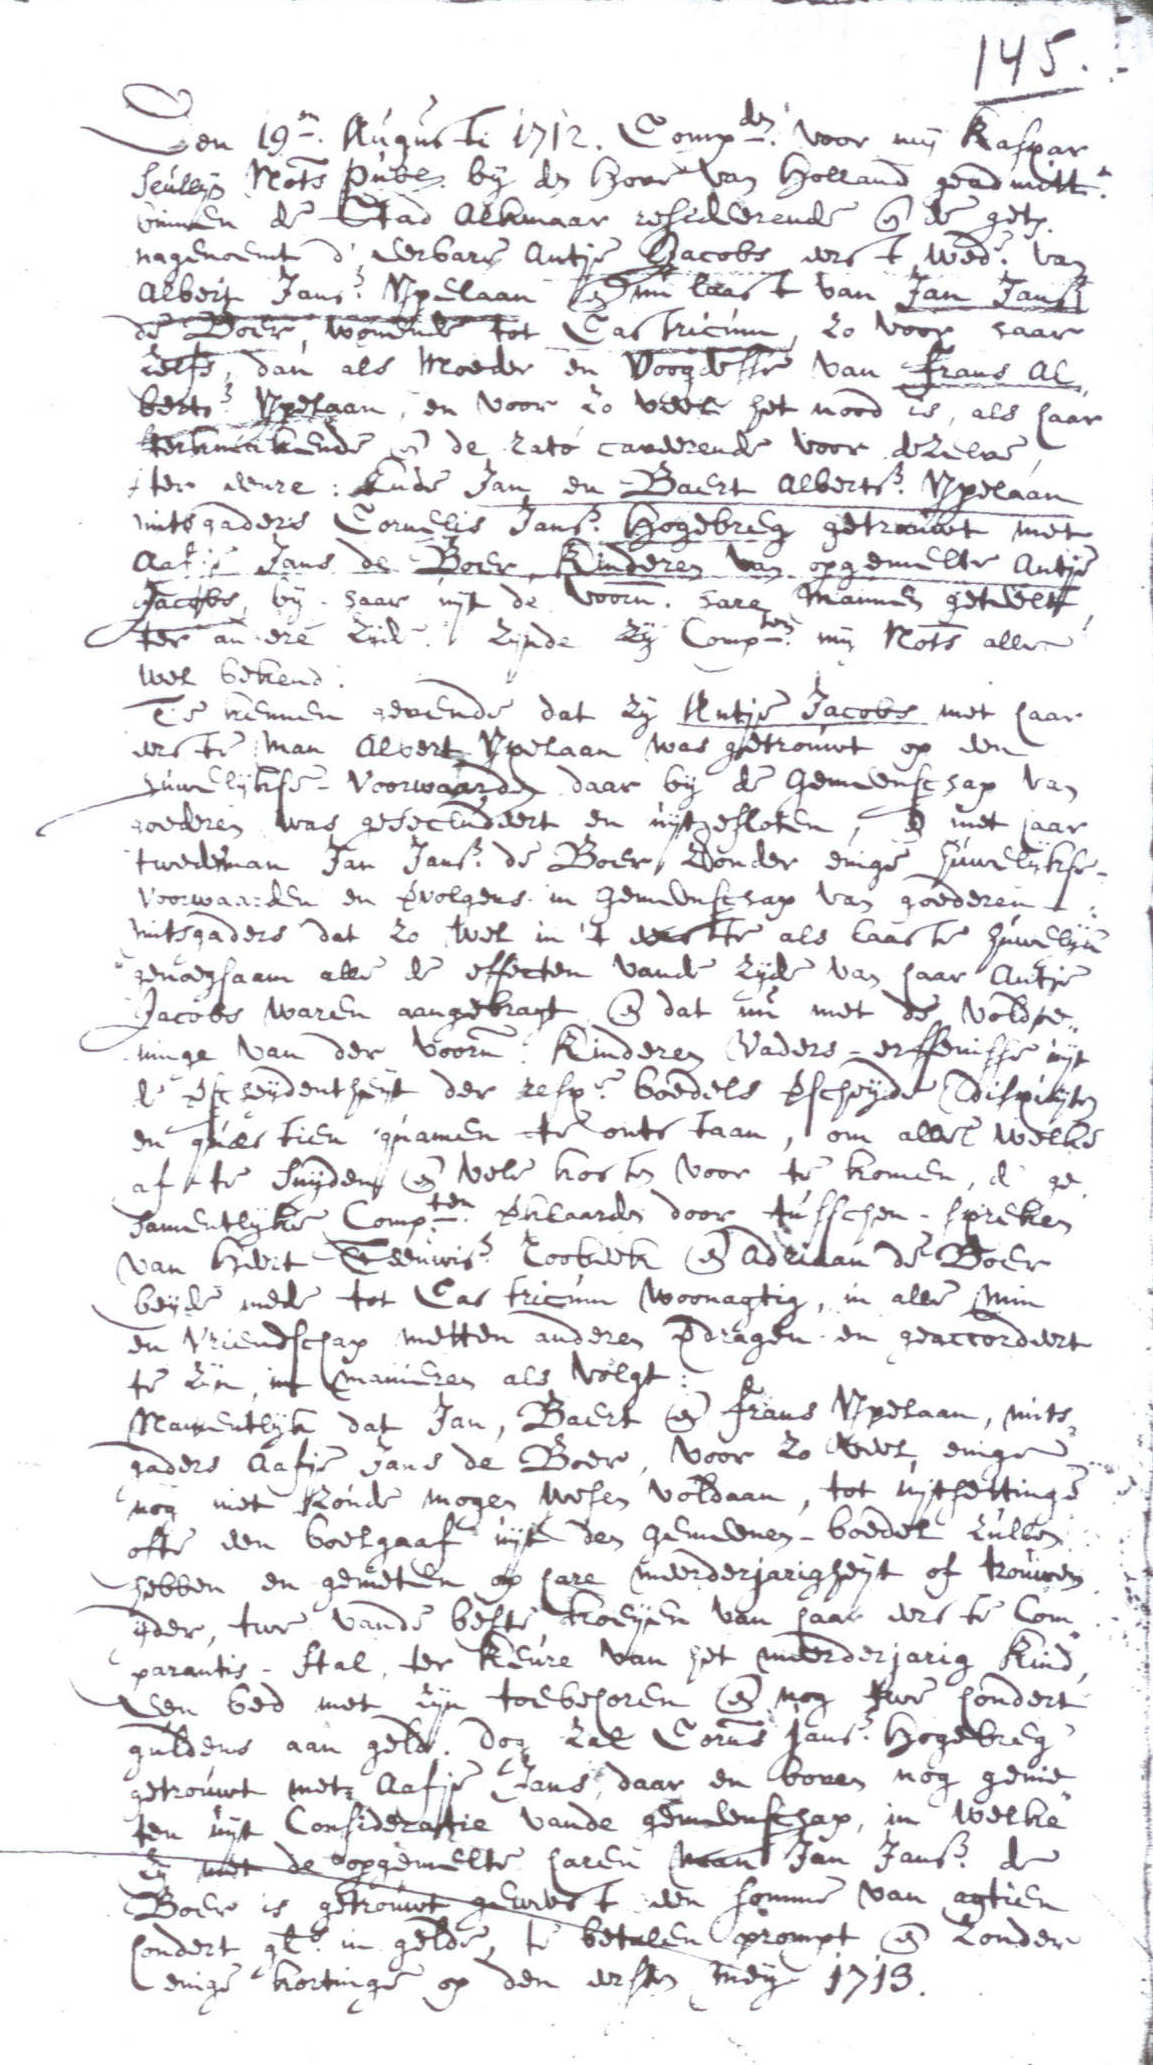 145.
Den 19en. Augusti 1712. Compden. voor mij Kaspar
Seullijn Nots. Publ. bij den Hove van Holland geadmitt.
binnen de Stad Alkmaar resideerende en de get.
nagenoemt d' eerbare Antje Jacobs eerst wede. van
Albert Jansz. Ypelaan en nu laast van Jan Jansz
de Boer, wonende tot Castricum, zo voor haar
zelfs, dan als Moeder en Voogdesse van Frans Al
bertsz. Ypelaan, en voor zo veel het nood is, als haar
sterkmakende en de rato caverende voor dezelve,
ter eenre: Ende Jan en Baert Albertsz. Ypelaan
mitsgaders Cornelis Jansz. Hogebreg getrouwt met
Aafje Jans de Boer, Kinderen van opgemelte Antje
Jacobs, bij haar uijt de voorn. hare Mannen geteelt,
ter andere zijde. Zijnde zij Compten. mij Nots alle
wel bekend.
Te kennen gevende dat zij Antje Jacobs met haar
eerste man Albert Ypelaan was getrouwt op een
huwelijkse-Voorwaarden daar bij de Gemeenschap van
goederen was gesecludeert en uijtgesloten, en met haar
tweede man Jan Jansz. de Boer, zonder enige huwelijkse-
voorwaarden en vvolgens in Gemeenschap van goederen
mitsgaders dat zo wel in 't eerste als laaste huwelijk
genoegsaam alle de effecten vande zijde van haar Antje
Jacobs waren aangebragt en dat nu met de voldoe-
ninge van der voorn. Kinderen Vaders-erffenisse uijt
d' vscheijdentheijt der resp. boedels vscheijde disputen
en questien quamen te ontstaan, om alle 't welke
af te snijden en vele kosten voor te komen, d' ge
samentlijke Compten. vklaarden door tusschen-spreken
van Heert Teeuwisz. Loobeek en Adriaan de Boer
beijde mede tot Castricum woonagtig, in alle Min
en Vriendschap metten anderen vdragen en geaccordeert
te zijn, in manieren als volgt:
Namentlijk dat Jan, Baert en Frans Ypelaan, mits-
gaders Aafje Jans de Boer, voor zo veel enige
nog niet konde mogen wesen voldaan, tot uijtsettinge
ofte een boelgaaf uijt den gemeenen-boedel zullen
hebben en genieten op hare meerderjarigheijt of trouwen
ijder, twe vande beste koeijen van haar eerste Com
parantis-stal, ter keure van het meerderjarig kind,
een bed met zijn toebehoren en nog twe hondert
guldens aan gelde. dog zal Corns Jansz. Hogebreg
getrouwt met Aafje Jans, daar en boven nog genie
ten uijt Consideratie vande gemeenschap, in welke
zij met de opgemelte haren man Jan Jansz. de
Boer is getrouwt geweest een somme van agtien
hondert gls. in gelde, te betalen prompt en zonder
enige kortinge op den eersten meij 1713.